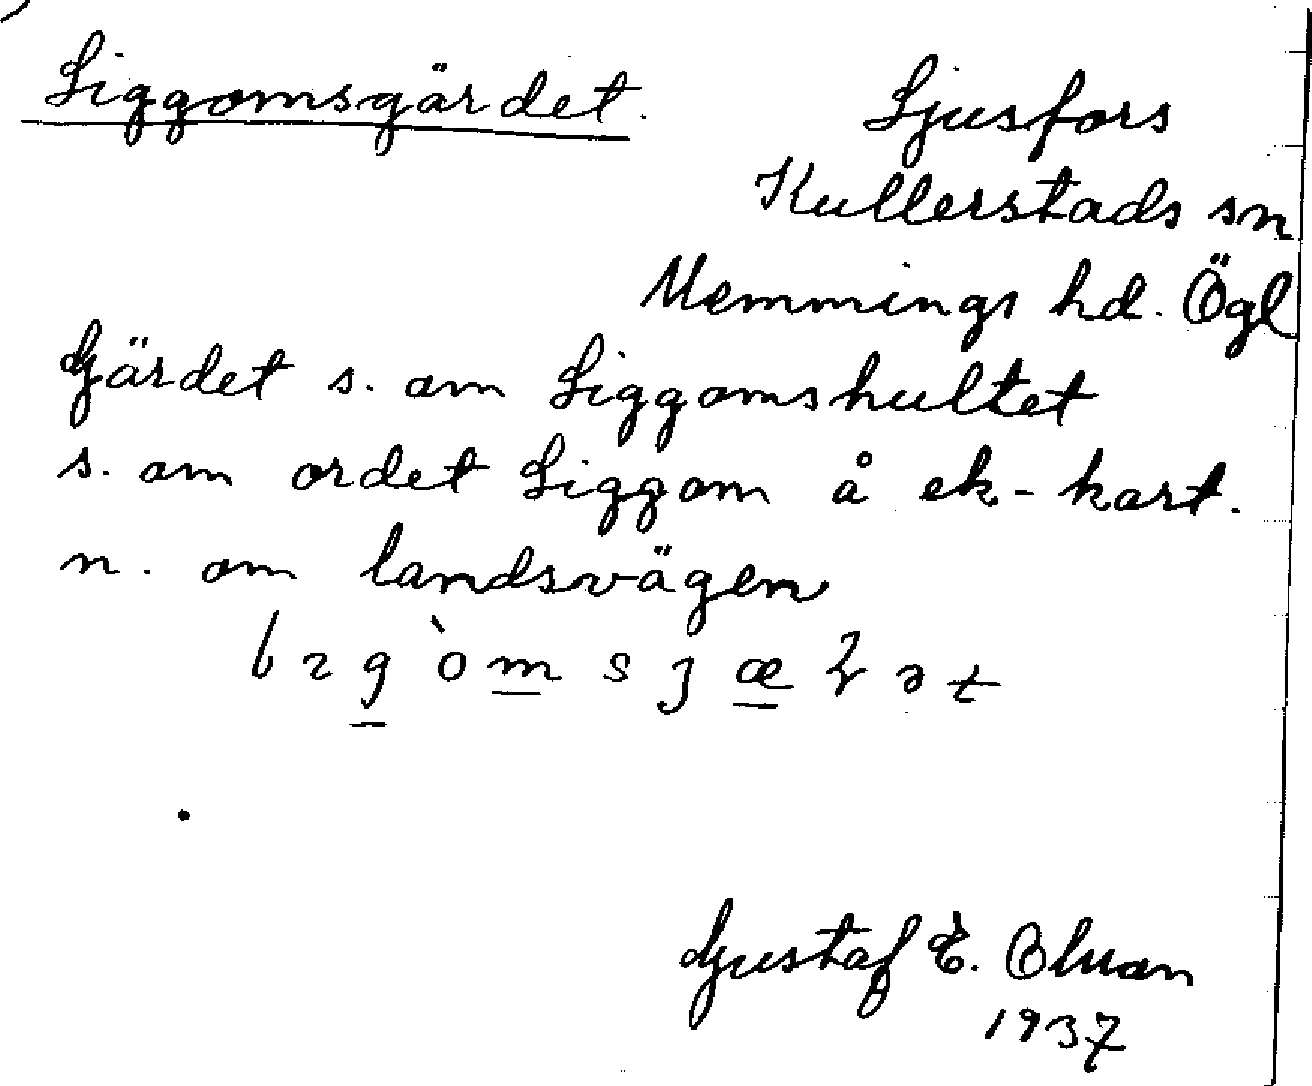 Liggomsgärdet.
Ljusfors
Kullerstads sn
Memmings hd. Ögl
Gärdet s. om Liggomshultet
s. om ordet Liggom å ek-kart.
n. om landsvägen
Gustaf E.
1937